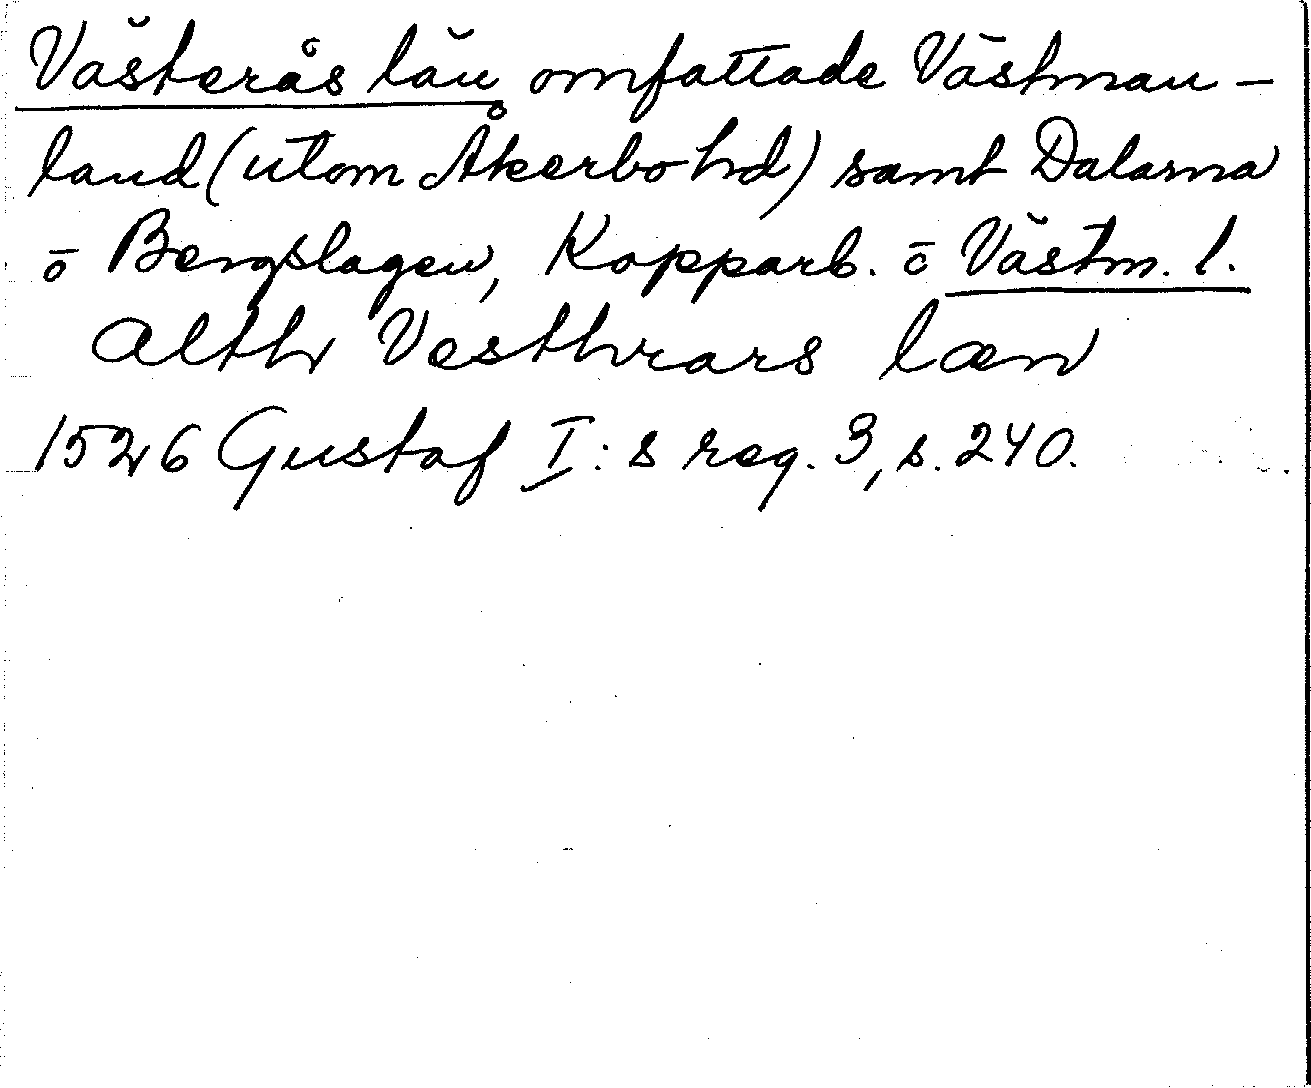 Västerås län omfattade Västman-
land (utom Åkerbo hd) samt Dalarna
o Bergslagen, Kopparb. o Västm. l.
Alth Vesthrars læn
1526 Gustaf I:s reg. 3, s. 240.